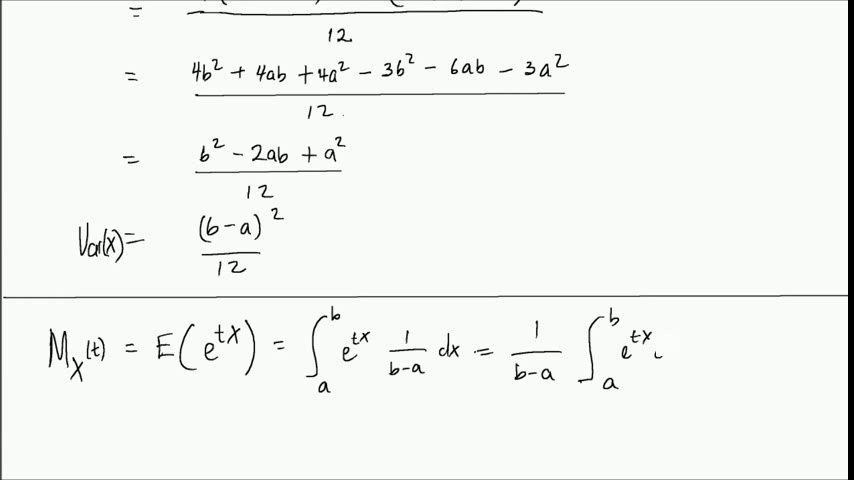 =
12
= 4b² + 4ab + 4a² − 3b² − 6ab − 3a²
12
= b² − 2ab + a²
12
Var(X) = (b−a)²
12
M_X(t) = E(e^{tX}) = ∫_a^b e^{tx} 1/(b−a) dx = 1/(b−a) ∫_a^b e^{tx}